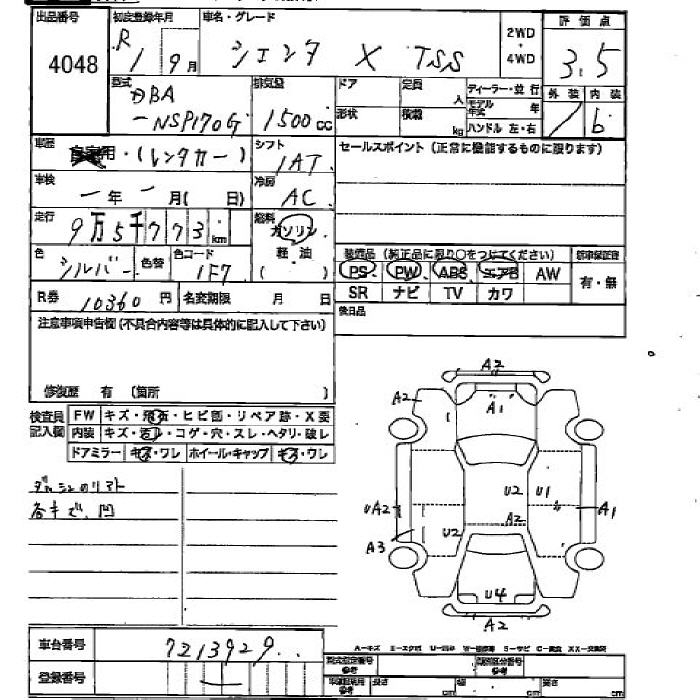 出品番号 初度登録年月 車名・グレード 2WD・4WD 評価点
4048 R 1 9月 シエンタ X TSS 3.5
型式 排気量 ドア 定員 人 ディーラー・並行 外装 内装
DBA
-NSP170G 1500cc 形状 積載 kg モデル年式 年 ハンドル 左・右 b
車歴 自家用・(レンタカー) シフト 1AT セールスポイント(正常に機能するものに限ります)
車検 一年 一月( 日) 冷房 AC
走行 9万5千773km 燃料 ガソリン
軽・油
( )
装備品(純正品に限り○をつけてください) 新車保証書
色 シルバー 色替 色コード 1F7
PS PW ABS エアB AW 有・無
R券 10360円 名変期限 月 日 SR ナビ TV カワ
注意事項申告欄(不具合内容等は具体的に記入して下さい) 後日品
修復歴 有(箇所 )
検査員記入欄 FW キズ・飛石・ヒビ割・リペア跡・X要
内装 キズ・汚レ・コゲ・穴・スレ・ヘタリ・破レ
ドアミラー キズ・ワレ ホイール・キャップ キズ・ワレ
各キズ、凹
A2
A2 A1
U2 U1
UA2 A2 A1
U2
A3
U4
A2
車台番号 7213929
登録番号 一
A-キズ
型式指定番号 参考 類別区分番号 参考
参考 長さ cm 幅 cm 高さ cm